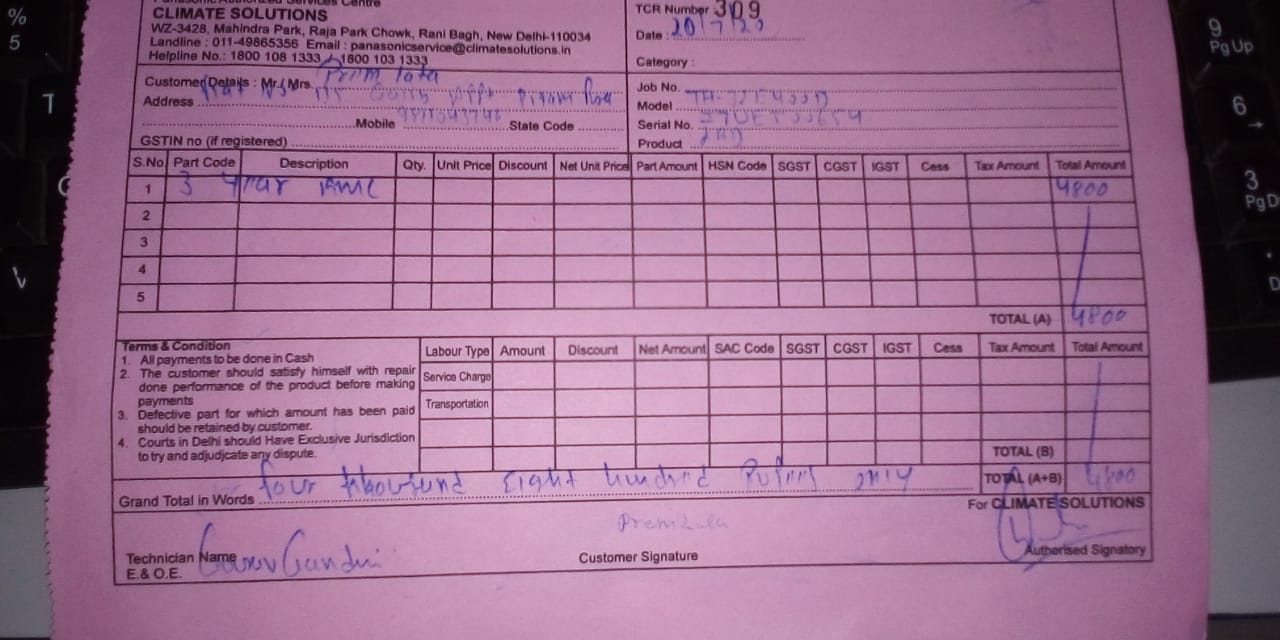 Panasonic Authorized Services Centre
CLIMATE SOLUTIONS
WZ-3428, Mahindra Park, Raja Park Chowk, Rani Bagh, New Delhi-110034
Landline : 011-49865356 Email : panasonicservice@climatesolutions.in
Helpline No.: 1800 108 1333, 1800 103 1333
TCR Number 309
Date : 20/7/23
Category :
Customer Details : Mr./ Mrs. Prem lata
Address
Mobile State Code
GSTIN no (if registered)
Job No.
Model
Serial No.
Product
S.No Part Code Description Qty. Unit Price Discount Net Unit Price Part Amount HSN Code SGST CGST IGST Cess Tax Amount Total Amount
1 3 year AMC 4800
2
3
4
5
TOTAL (A) 4800
Terms & Condition
1. All payments to be done in Cash
2. The customer should satisfy himself with repair
done performance of the product before making
payments
3. Defective part for which amount has been paid
should be retained by customer.
4. Courts in Delhi should Have Exclusive Jurisdiction
to try and adjudjcate any dispute.
Labour Type Amount Discount Net Amount SAC Code SGST CGST IGST Cess Tax Amount Total Amount
Service Charge
Transportation
TOTAL (B)
TOTAL (A+B) 4800
Grand Total in Words four thousand Eight hundred only
For CLIMATE SOLUTIONS
Premlata
Technician Name Gandhi
Customer Signature
Authorised Signatory
E.& O.E.
% 5
T
9 PgUp
6
3 PgD